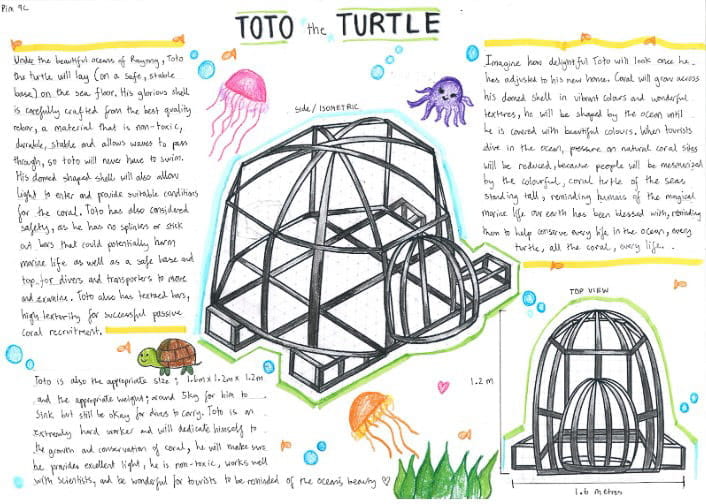 Pin 9C
TOTO the TURTLE
Under the beautiful oceans of Rayong, Toto
the turtle will lay (on a safe, stable
base) on the sea floor. His glorious shell
is carefully crafted from the best quality
rebar, a material that is non-toxic,
durable, stable and allows waves to pass
through, so toto will never have to swim.
His domed shaped shell will also allow
light to enter and provide suitable conditions
for the coral. Toto has also considered
safety, as he has no splinters or stick
out bars that could potentially harm
marine life as well as a safe base and
top for divers and transporters to move
and examine. Toto also has textured bars,
high texturity for successful passive
coral recruitment.
Toto is also the appropriate size; 1.6m x 1.2m x 1.2m
and the appropriate weight; around 5kg for him to
sink but still be okay for divers to carry. Toto is an
extremely hard worker and will dedicate himself to
the growth and conservation of coral, he will make sure
he provides excellent light, he is non-toxic, works well
with scientists, and be wonderful for tourists to be reminded of the ocean's beauty
Side/ISOMETRIC
Imagine how delightful Toto will look once he
has adjusted to his new home. Coral will grow across
his domed shell in vibrant colours and wonderful
textures, he will be shaped by the ocean until
he is covered with beautiful colours. When tourists
dive in the ocean, pressure on natural coral sites
will be reduced, because people will be mesmerized
by the colourful, coral turtle of the seas
standing tall, reminding humans of the magical
marine life our earth has been blessed with, reminding
them to help conserve every life in the ocean, every
turtle, all the coral, every life.
TOP VIEW
1.2 m
1.6 metres